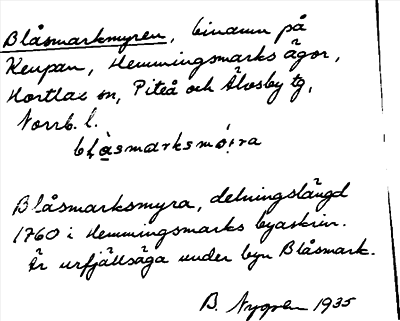 Blåsmarkmyren, binamn på
Kenpan, Hemmingsmarks ägor,
Hortlax sn, Piteå och Älvsby tg,
Norrb. l.
blåsmarksmo̤i̤ra
Blåsmarksmyra, delningslängd
1760 i Hemmingsmarks byaskrin.
Är urfjällsäga under byn Blåsmark.
B. Nygren 1935